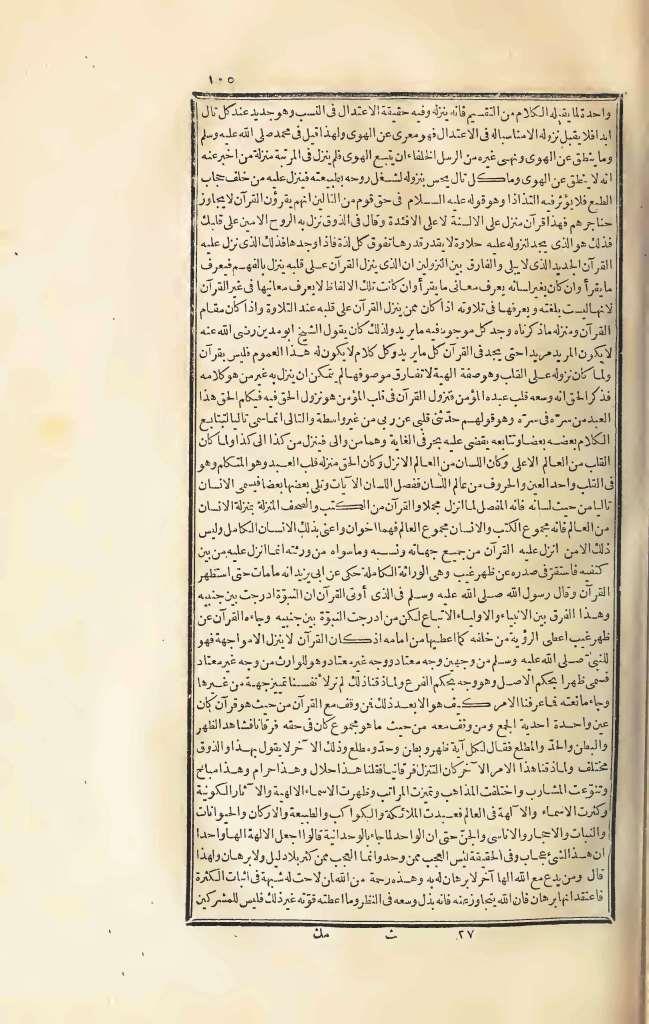 ١٠٥
واحدة لما يقبله الكلام من التقسيم فانه ينزله وفيه حقيقة الاعتدال فى النسب وهو جديد عند كل تال
ابدا فلا يقبل نزوله الا مناسبا له فى الاعتدال فهو معرى عن الهوى ولهذا قيل فى محمد صلى الله عليه وسلم
وما ينطق عن الهوى ونهى غيره من الرسل الخلفاء ان يتبع الهوى فلم ينزل فى المرتبة منزلة من اخبر عنه
انه لا ينطق عن الهوى وما كل تال يحس بنزوله لشغل روحه بطبيعته فينزل عليه من خلف حجاب
الطبع فلا يؤثر فيه التذاذا وهو قوله عليه السلام فى حق قوم من التالين انهم يقرؤن القرآن لا يجاوز
حناجرهم فهذا قرآن منزل على الالسنة لا على الافئدة وقال فى الذوق نزل به الروح الامين على قلبك
فذلك هو الذى يجد لنزوله عليه حلاوة لا يقدر قدرها تفوق كل لذة فاذا وجدها فذلك الذى نزل عليه
القرآن الجديد الذى لا يبلى والفارق بين النزولين ان الذى ينزل القرآن على قلبه ينزل بالفهم فيعرف
ما يقرأ وان كان بغير لسانه ويعرف معانى ما يقرأ وان كانت تلك الالفاظ لا يعرف معانيها فى غير القرآن
لانها ليست بلغته ويعرفها فى تلاوته اذا كان ممن ينزل القرآن على قلبه عند التلاوة واذا كان مقام
القرآن ومنزله ما ذكرناه وجد كل موجود فيه ما يريد ولذلك كان يقول الشيخ ابو مدين رضى الله عنه
لا يكون المريد مريدا حتى يجد فى القرآن كل ما يريد وكل كلام لا يكون له هذا العموم فليس بقرآن
ولما كان نزوله على القلب وهو صفة الهية لا تفارق موصوفها لم يتمكن ان ينزل به غير من هو كلامه
فذكر الحق انه وسعه قلب عبده المؤمن فنزول القرآن فى قلب المؤمن هو نزول الحق فيه فيكلم الحق هذا
العبد من سره فى سره وهو قولهم حدثنى قلبى عن ربى من غير واسطة والتالى انما سمى تاليا لتتابع
الكلام بعضه بعضا وتتابعه يقضى عليه بحرفى الغاية وهما من والى فينزل من كذا الى كذا ولما كان
القلب من العالم الاعلى وكان اللسان من العالم الانزل وكان الحق منزله قلب العبد وهو المتكلم وهو
فى القلب واحد العين والحروف من عالم اللسان ففصل اللسان الآيات وتلى بعضها بعضا فيسمى الانسان
تاليا من حيث لسانه فانه المفصل لما انزل مجملا والقرآن من الكتب والصحف المنزلة بمنزلة الانسان
من العالم فانه مجموع الكتب والانسان مجموع العالم فهما اخوان واعنى بذلك الانسان الكامل وليس
ذلك الا من انزل عليه القرآن من جميع جهاته ونسبه وما سواه من ورثته انما انزل عليه من بين
كتفيه فاستقر فى صدره عن ظهر غيب وهى الوراثة الكاملة حكى عن ابى يزيد انه ما مات حتى استظهر
القرآن وقال رسول الله صلى الله عليه وسلم فى الذى اوتى القرآن ان النبوة ادرجت بين جنبيه
وهذا الفرق بين الانبياء والاولياء الاتباع لكن من ادرجت النبوة بين جنبيه وجاءه القرآن عن
ظهر غيب اعطى الرؤية من خلفه كما اعطيها من امامه اذ كان القرآن لا ينزل الا مواجهة فهو
للنبى صلى الله عليه وسلم من وجهين وجه معتاد ووجه غير معتاد وهو للوارث من وجه غير معتاد
فسمى ظهرا بحكم الاصل وهو وجه بحكم الفرع ولما ذقنا ذلك لم نر لانفسنا تمييز جهة من غيرها
وجاءنا بغتة فما عرفنا الامر كيف هو الا بعد ذلك فمن وقف مع القرآن من حيث هو قرآن كان
عين واحدة احدية الجمع ومن وقف معه من حيث ما هو مجموع كان فى حقه فرقانا فشاهد الظهر
والبطن والحد والمطلع فقال لكل آية ظهر وبطن وحد ومطلع وذلك الآخر لا يقول بهذا والذوق
مختلف ولما ذقنا هذا الامر الآخر كان التنزل فرقانيا فقلنا هذا حلال وهذا حرام وهذا مباح
وتنوعت المشارب واختلفت المذاهب وتميزت المراتب وظهرت الاسماء الالهية والآثار الكونية
وكثرت الاسماء والآلهة فى العالم فعبدت الملائكة والكواكب والطبيعة والاركان والحيوانات
والنبات والاحجار والاناسى والجن حتى ان الواحد لما جاء بالوحدانية قالوا اجعل الآلهة الها واحدا
ان هذا لشىء عجاب وفى الحقيقة ليس العجب ممن وحد وانما العجب ممن كثر بلا دليل ولا برهان ولهذا
قال ومن يدع مع الله الها آخر لا برهان له به وهذه رحمة من الله لمن لاحت له شبهة فى اثبات الكثرة
فاعتقد انها برهان فان الله يتجاوز عنه فانه بذل وسعه فى النظر وما اعطته قوته غير ذلك فليس للمشركين
٢٧ ث مك